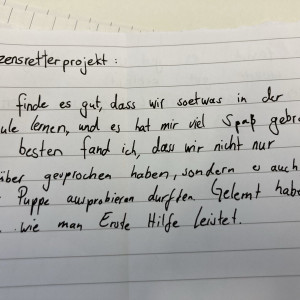 zensretterprojekt:
finde es gut, dass wir soetwas in der
ule lernen, und es hat mir viel Spaß gebra
besten fand ich, dass wir nicht nur
über gesprochen haben, sondern es auch
Puppe ausprobieren durften Gelernt habe
wie man Erste Hilfe leistet.